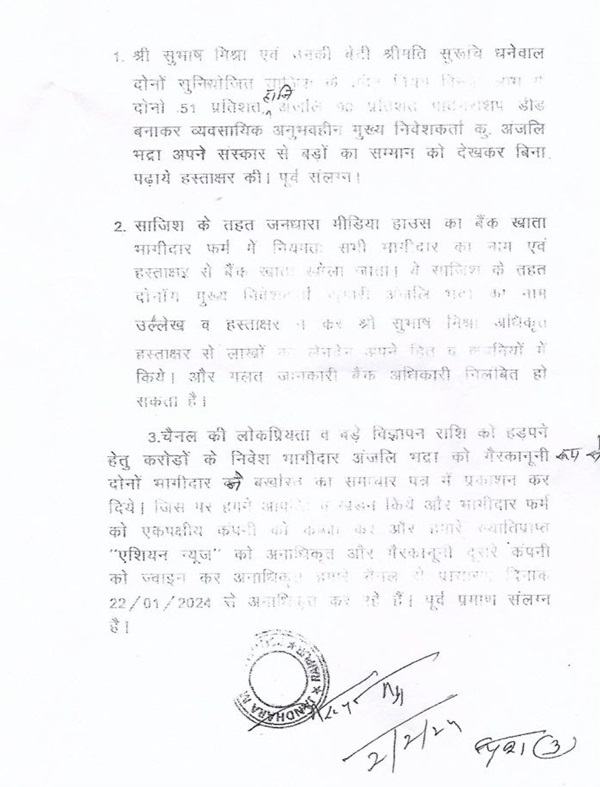 1. श्री सुभाष मिश्रा एवं उनकी बेटी श्रीमति सुरूचि धनेवाल
दोनों सुनियोजित
दोनो 51 प्रतिशत, अंजलि प्रतिशत डीड
बनाकर व्यवसायिक अनुभवहीन मुख्य निवेशकर्ता कु. अंजलि
भद्रा अपने संस्कार से बड़ों का सम्मान को देखकर बिना
पढ़ाये हस्ताक्षर की। पूर्व संलग्न।
2. साजिश के तहत जनधारा मीडिया हाउस का बैंक खाता
भागीदार फर्म में नियमतः सभी भागीदार का नाम एवं
हस्ताक्षर से बैंक खाता खोला जाता। ये साजिश के तहत
मुख्य निवेशकर्ता कुमारी अंजलि भद्रा का नाम
उल्लेख व हस्ताक्षर न कर श्री सुभाष मिश्रा अधिकृत
हस्ताक्षर से लाखों का लेनदेन अपने हित व कंपनियों में
किये। और गलत जानकारी बैंक अधिकारी निलंबित हो
सकता है।
3.चैनल की लोकप्रियता व बड़े विज्ञापन राशि को हड़पने
हेतु करोड़ों के निवेश भागीदार अंजलि भद्रा को गैरकानूनी रूप से
दोनों भागीदार ने बर्खास्त का समाचार पत्र में प्रकाशन कर
दिये। जिस पर हमने आपत्ति व खंडन किये और भागीदार फर्म
को एकपक्षीय कंपनी को कब्जा कर और हमारे ख्यातिप्राप्त
"एशियन न्यूज" को अनाधिकृत और गैरकानूनी दूसरे कंपनी
को ज्वाइन कर अनाधिकृत हमारे चैनल से प्रसारण दिनाक
22/01/2024 से अनाधिकृत कर रहे हैं। पूर्व प्रमाण संलग्न
है।
JANDHARA RAIPUR
2/2/24
(3)